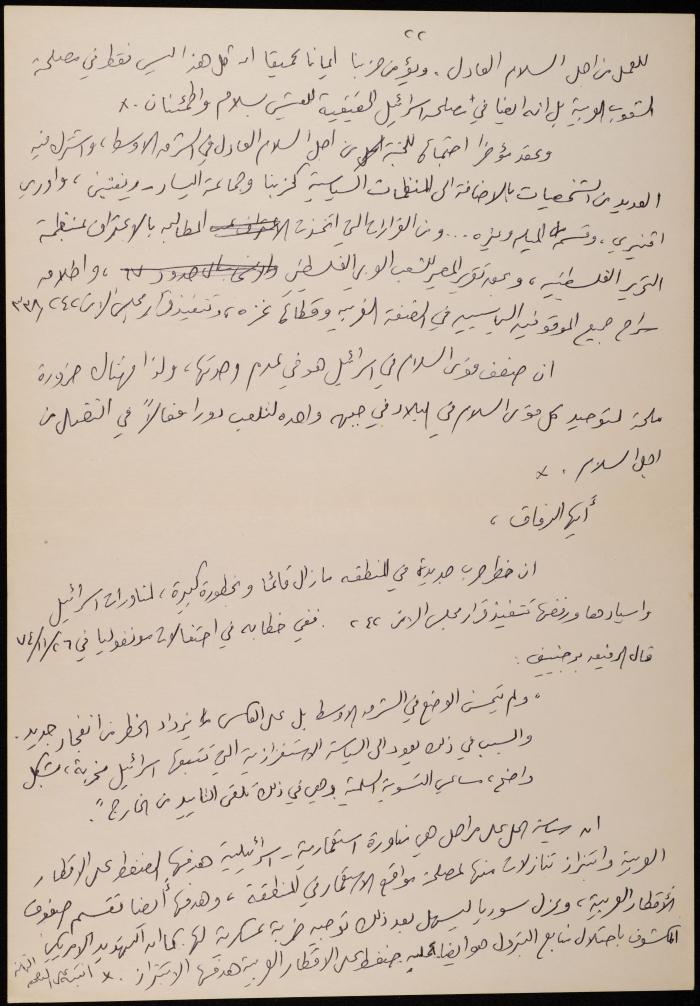 ٢٢
للعمل من اجل السلام العادل . ويؤمن حزبنا ايمانا عميقا ان مثل هذا ليس فقط في مصلحة
الشعوب العربية بل انه ايضا في مصلحة اسرائيل الحقيقية للعيش بسلام واطمئنان . ×
وعقد مؤخرا اجتماعا للجنة من اجل السلام العادل في الشرق الاوسط ، واشترك فيه
العديد من الشخصيات بالاضافة الى المنظمات السياسية كحزبنا وجماعة اليسار ، واوري
افنيري ، وغيره ... ومن القرارات التي اتخذت المطالبه بالاعتراف بمنظمة
التحرير الفلسطينيه ، وبحق تقرير المصير للشعب العربي الفلسطيني ، واطلاق
سراح جميع الموقوفين السياسيين في الضفة الغربيه وقطاع غزه ، وتنفيذ قرار مجلس الامن ٢٤٢ / ٣٣٨
ان ضعف قوى السلام في اسرائيل هو في عدم وحدتها ، ولذا فهناك ضرورة
ملحة لتوحيد كل قوى السلام في البلاد في جبهه واحده لتلعب دورا فعالاً في النضال من
اجل السلام . ×
أيها الرفاق ،
ان خطر حرب جديدة في المنطقه ما زال قائما وبخطورة كبيرة ، لمناورات اسرائيل
واسيادها ورفضها تنفيذ قرار مجلس الامن ٢٤٢ . ففي خطابه في احتفالات مونغوليا في ٢٦/١١/٧٤
قال الرفيق برجنيف :
" ولم يتحسن الوضع في الشرق الاوسط بل على العكس يزداد الخطر من انفجار جديد .
والسبب في ذلك يعود الى السياسة الاستفزازية التي تتبعها اسرائيل مخربة ، بشكل
واضح ، مساعي التسوية السلمية وهي في ذلك تلقى التاييد من الخارج " .
ان سياسة الحل على مراحل هي مناورة استعمارية - اسرائيلية هدفها الضغط على الاقطار
العربية وابتزاز تنازلات منها لمصلحة مواقع الاستعمار في المنطقة ، وهدفها أيضا تقسيم صفوف
الأقطار العربية ، وعزل سوريا ليسهل بعد ذلك توجيه ضربة عسكرية لها . كما ان التهديد الامريكي
المكشوف باحتلال منابع البترول هو ايضا ضغط على الاقطار العربية هدفها الابتزاز . ×